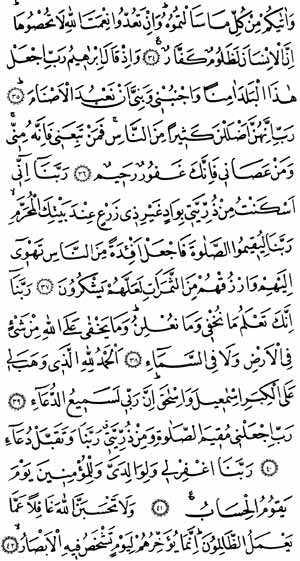 وَاٰتٰيكُمْ مِنْ كُلِّ مَا سَاَلْتُمُوهُۜ وَاِنْ تَعُدُّوا نِعْمَتَ اللّٰهِ لَا تُحْصُوهَاۜ
اِنَّ الْاِنْسَانَ لَظَلُومٌ كَفَّارٌ ﴿٣٤﴾ وَاِذْ قَالَ اِبْرٰهِيمُ رَبِّ اجْعَلْ
هٰذَا الْبَلَدَ اٰمِنًا وَاجْنُبْنِي وَبَنِيَّ اَنْ نَعْبُدَ الْاَصْنَامَۜ ﴿٣٥﴾
رَبِّ اِنَّهُنَّ اَضْلَلْنَ كَثِيرًا مِنَ النَّاسِۚ فَمَنْ تَبِعَنِي فَاِنَّهُ مِنِّيۚ
وَمَنْ عَصَانِي فَاِنَّكَ غَفُورٌ رَحِيمٌ ﴿٣٦﴾ رَبَّنَا اِنِّي
اَسْكَنْتُ مِنْ ذُرِّيَّتِي بِوَادٍ غَيْرِ ذِي زَرْعٍ عِنْدَ بَيْتِكَ الْمُحَرَّمِۙ
رَبَّنَا لِيُقِيمُوا الصَّلٰوةَ فَاجْعَلْ اَفْـِٔدَةً مِنَ النَّاسِ تَهْوِي
اِلَيْهِمْ وَارْزُقْهُمْ مِنَ الثَّمَرَاتِ لَعَلَّهُمْ يَشْكُرُونَ ﴿٣٧﴾ رَبَّنَا
اِنَّكَ تَعْلَمُ مَا نُخْفِي وَمَا نُعْلِنُۜ وَمَا يَخْفٰى عَلَى اللّٰهِ مِنْ شَيْءٍ
فِي الْاَرْضِ وَلَا فِي السَّمَاءِ ﴿٣٨﴾ اَلْحَمْدُ لِلّٰهِ الَّذِي وَهَبَ لِي
عَلَى الْكِبَرِ اِسْمٰعِيلَ وَاِسْحٰقَۜ اِنَّ رَبِّي لَسَمِيعُ الدُّعَاءِ ﴿٣٩﴾
رَبِّ اجْعَلْنِي مُقِيمَ الصَّلٰوةِ وَمِنْ ذُرِّيَّتِيۗ رَبَّنَا وَتَقَبَّلْ دُعَاءِ
﴿٤٠﴾ رَبَّنَا اغْفِرْ لِي وَلِوَالِدَيَّ وَلِلْمُؤْمِنِينَ يَوْمَ
يَقُومُ الْحِسَابُ۟ ﴿٤١﴾ وَلَا تَحْسَبَنَّ اللّٰهَ غَافِلًا عَمَّا
يَعْمَلُ الظَّالِمُونَۜ اِنَّمَا يُؤَخِّرُهُمْ لِيَوْمٍ تَشْخَصُ فِيهِ الْاَبْصَارُۙ ﴿٤٢﴾